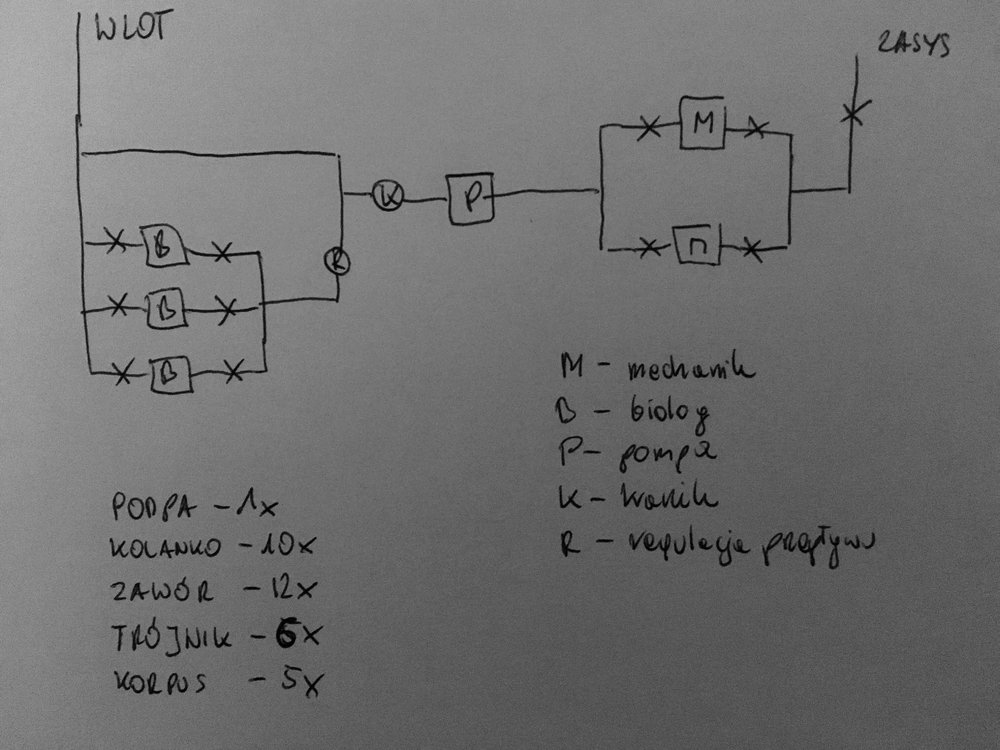 WLOT
ZASYS
M
K
P
R
B
M
B
B
M - mechanik
B - biolog
P - pompa
K - kranik
R - regulacja przepływu
PODPA - 1x
KOLANKO - 10x
ZAWÓR - 12x
TRÓJNIK - 6x
KORPUS - 5x